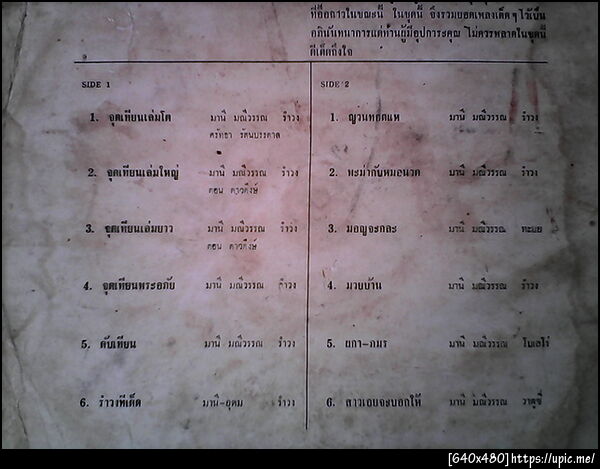 ที่ฮือฮาวในขณะนี้ ในชุดนี้ จึงรวมยอดเพลงเด็ดๆ ไว้เป็น
อภินันทนาการแด่ท่านผู้มีอุปการะคุณ ไม่ควรพลาดในชุดนี้
ตีเด็ดถึงใจ
SIDE 1
1. จุดเทียนเล่มโต มานี มณีวรรณ รำวง
ศรัทธา รัตนบรรดาล
2. จุดเทียนเล่มใหญ่ มานี มณีวรรณ รำวง
ดอน ดาวดึงษ์
3. จุดเทียนเล่มยาว มานี มณีวรรณ รำวง
ดอน ดาวดึงษ์
4. จุดเทียนพระอภัย มานี มณีวรรณ รำวง
5. ดับเทียน มานี มณีวรรณ รำวง
6. รำวงทีเด็ด มานี-อุดม รำวง
SIDE 2
1. ญวนทอดแห มานี มณีวรรณ รำวง
2. พะม่ากับหมอนวด มานี มณีวรรณ รำวง
3. มอญจะกละ มานี มณีวรรณ
4. มวยบ้าน มานี มณีวรรณ รำวง
5. ยกา-ภมร มานี มณีวรรณ โบเลโร่
6. สาวเอยจะบอกให้ มานี มณีวรรณ วาตูซี่
[640x480]https://upic.me/